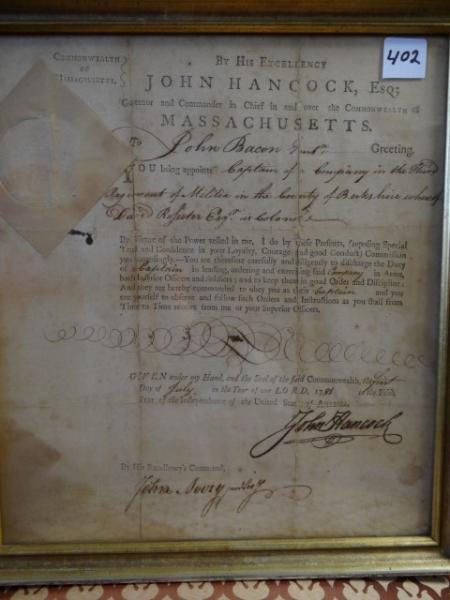 402
COMMONWEALTH
OF
MASSACHUSETTS.
BY HIS EXCELLENCY
JOHN HANCOCK, ESQ;
Governor and Commander in Chief in and over the COMMONWEALTH of
MASSACHUSETTS.
To John Bacon Gent. Greeting.
YOU being appointed Captain of a Company in the Third
Regiment of Militia in the County of Berkshire whereof
David Rosseter Esqr. is Colonel
By Virtue of the Power vested in me, I do by these Presents, (reposing special
Trust and Confidence in your Loyalty, Courage and good Conduct) Commission
you accordingly.—You are therefore carefully and diligently to discharge the Duty
of Captain in leading, ordering and exercising said Company in Arms,
both Inferior Officers and Soldiers; and to keep them in good Order and Discipline:
And they are hereby commanded to obey you as their Captain and you
are yourself to observe and follow such Orders and Instructions as you shall from
Time to Time receive from me or your Superior Officers.
GIVEN under my Hand, and the Seal of the said Commonwealth, the First
Day of July in the Year of our LORD, 178
Year of the Independence of the United States of America
John Hancock
By His Excellency's Command,
John Avery